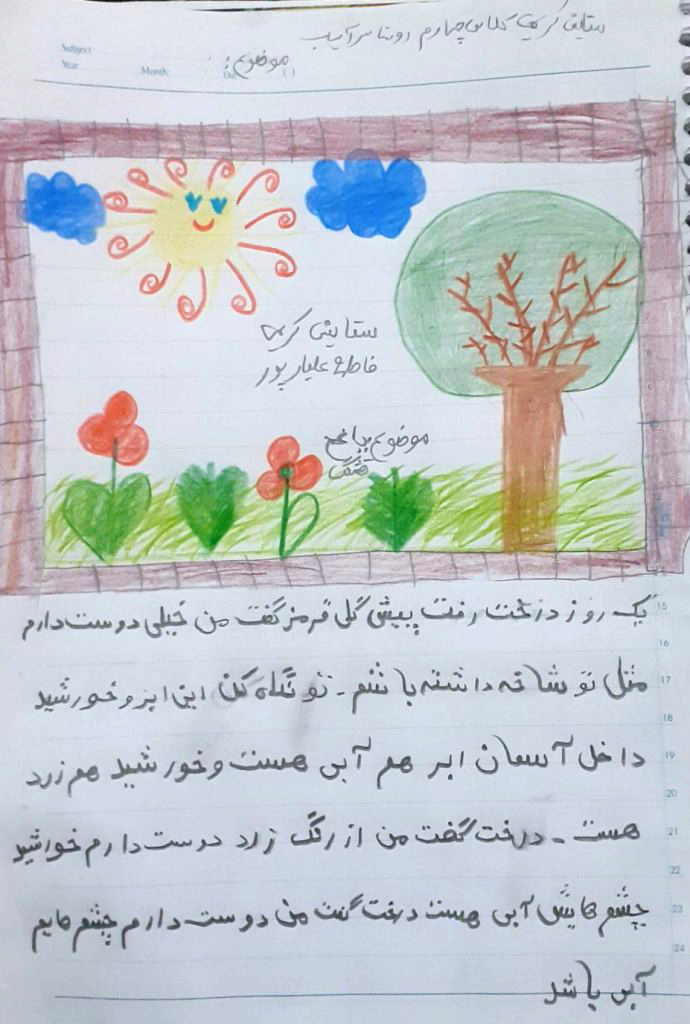 ستایش کریمی کلاس چهارم روستا سرآسیاب
Subject
Year Month: Day ( )
موضوع:
ستایش کریمی
فاطمه علیارپور
موضوع باغچه
قشنگ
یک روز درخت رفت پیش گلی قرمز گفت من خیلی دوست دارم
مثل تو شاخه داشته باشم - تو نگاه کن این ابر و خورشید
داخل آسمان ابر هم آبی هست و خورشید هم زرد
هست - درخت گفت من از رنگ زرد دوست دارم خواشید
چشم هایش آبی هست درخت گفت من دوست دارم چشم هایم
آبی باشد
15
16
17
18
19
20
21
22
23
24